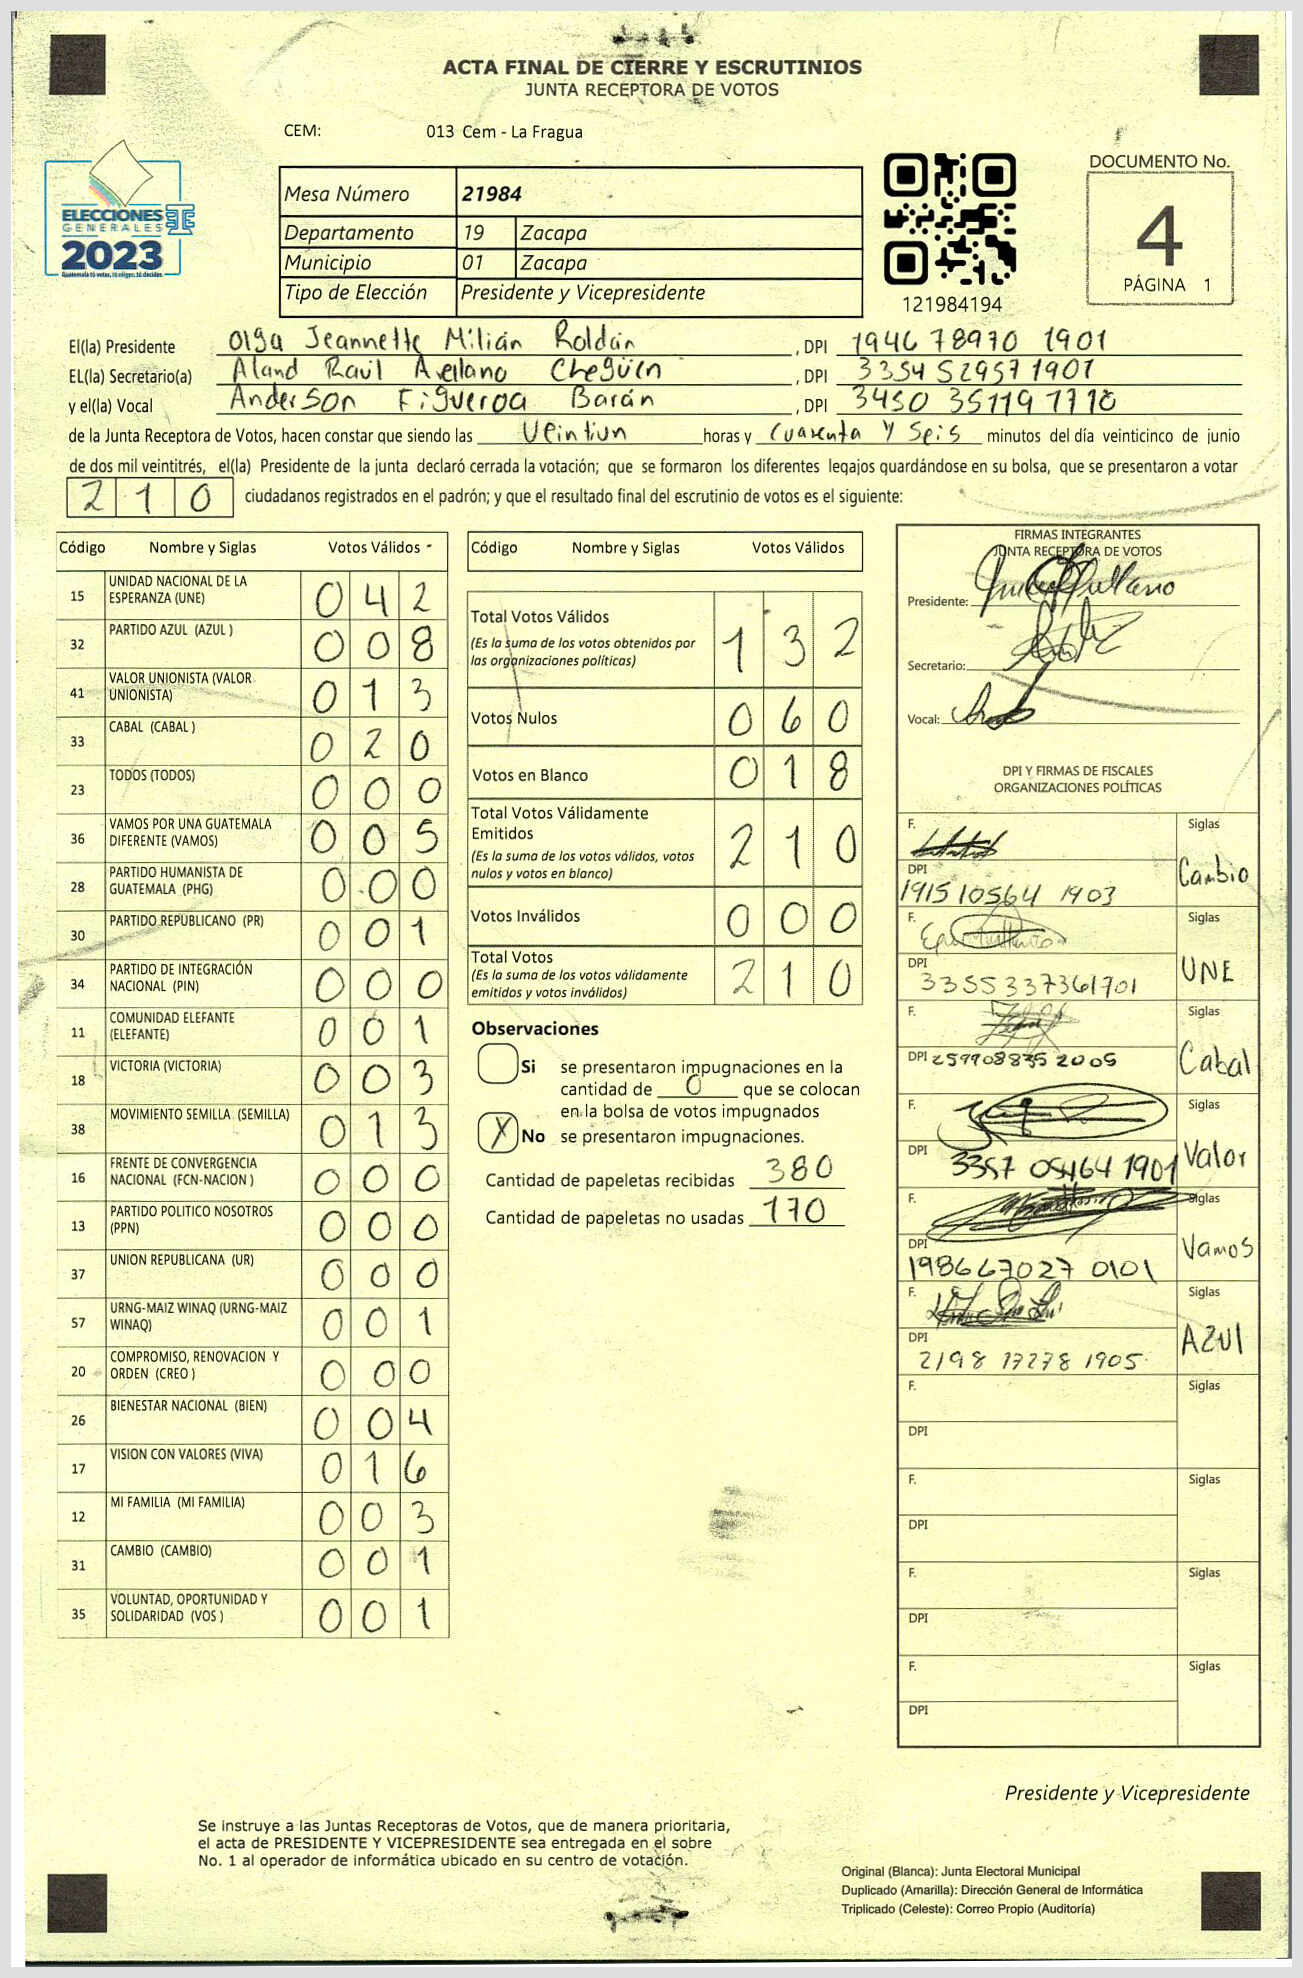 ACTA FINAL DE CIERRE Y ESCRUTINIOS
JUNTA RECEPTORA DE VOTOS
CEM: 013 Cem - La Fragua
ELECCIONES
GENERALES
2023
Guatemala tú votas, tú eliges, tú decides.
Mesa Número 21984
Departamento 19 Zacapa
Municipio 01 Zacapa
Tipo de Elección Presidente y Vicepresidente
121984194
DOCUMENTO No.
4
PÁGINA 1
El(la) Presidente Olga Jeannette Milián Roldán , DPI 1946 78970 1901
EL(la) Secretario(a) Aland Raúl Arellano Chegüen , DPI 3354 52957 1901
y el(la) Vocal Anderson Figueroa Barán , DPI 3450 35119 1710
de la Junta Receptora de Votos, hacen constar que siendo las Veintiun horas y Cuarenta y Seis minutos del día veinticinco de junio
de dos mil veintitrés, el(la) Presidente de la junta declaró cerrada la votación; que se formaron los diferentes legajos guardándose en su bolsa, que se presentaron a votar
210 ciudadanos registrados en el padrón; y que el resultado final del escrutinio de votos es el siguiente:
Código Nombre y Siglas Votos Válidos
15 UNIDAD NACIONAL DE LA ESPERANZA (UNE) 042
32 PARTIDO AZUL (AZUL ) 008
41 VALOR UNIONISTA (VALOR UNIONISTA) 013
33 CABAL (CABAL ) 020
23 TODOS (TODOS) 000
36 VAMOS POR UNA GUATEMALA DIFERENTE (VAMOS) 005
28 PARTIDO HUMANISTA DE GUATEMALA (PHG) 000
30 PARTIDO REPUBLICANO (PR) 001
34 PARTIDO DE INTEGRACIÓN NACIONAL (PIN) 000
11 COMUNIDAD ELEFANTE (ELEFANTE) 001
18 VICTORIA (VICTORIA) 003
38 MOVIMIENTO SEMILLA (SEMILLA) 013
16 FRENTE DE CONVERGENCIA NACIONAL (FCN-NACION ) 000
13 PARTIDO POLITICO NOSOTROS (PPN) 000
37 UNION REPUBLICANA (UR) 000
57 URNG-MAIZ WINAQ (URNG-MAIZ WINAQ) 001
20 COMPROMISO, RENOVACION Y ORDEN (CREO ) 000
26 BIENESTAR NACIONAL (BIEN) 004
17 VISION CON VALORES (VIVA) 016
12 MI FAMILIA (MI FAMILIA) 003
31 CAMBIO (CAMBIO) 001
35 VOLUNTAD, OPORTUNIDAD Y SOLIDARIDAD (VOS ) 001
Código Nombre y Siglas Votos Válidos
Total Votos Válidos 132
(Es la suma de los votos obtenidos por
las organizaciones políticas)
Votos Nulos 060
Votos en Blanco 018
Total Votos Válidamente
Emitidos 210
(Es la suma de los votos válidos, votos
nulos y votos en blanco)
Votos Inválidos 000
Total Votos 210
(Es la suma de los votos válidamente
emitidos y votos inválidos)
Observaciones
Si se presentaron impugnaciones en la
cantidad de 0 que se colocan
en la bolsa de votos impugnados
X No se presentaron impugnaciones.
Cantidad de papeletas recibidas 380
Cantidad de papeletas no usadas 170
FIRMAS INTEGRANTES
JUNTA RECEPTORA DE VOTOS
Presidente:
Secretario:
Vocal:
DPI Y FIRMAS DE FISCALES
ORGANIZACIONES POLÍTICAS
F. Siglas
DPI 1915 10564 1903 Cambio
F. Siglas
DPI 3355337361701 UNE
F. Siglas
DPI 259908835 2005 Cabal
F. Siglas
DPI 3357 05464 1901 Valor
F. Siglas
DPI 198667027 0101 Vamos
F. Siglas
DPI 2198 17278 1905 AZUl
F. Siglas
DPI
F. Siglas
DPI
F. Siglas
DPI
F. Siglas
DPI
Presidente y Vicepresidente
Se instruye a las Juntas Receptoras de Votos, que de manera prioritaria,
el acta de PRESIDENTE Y VICEPRESIDENTE sea entregada en el sobre
No. 1 al operador de informática ubicado en su centro de votación.
Original (Blanca): Junta Electoral Municipal
Duplicado (Amarilla): Dirección General de Informática
Triplicado (Celeste): Correo Propio (Auditoría)